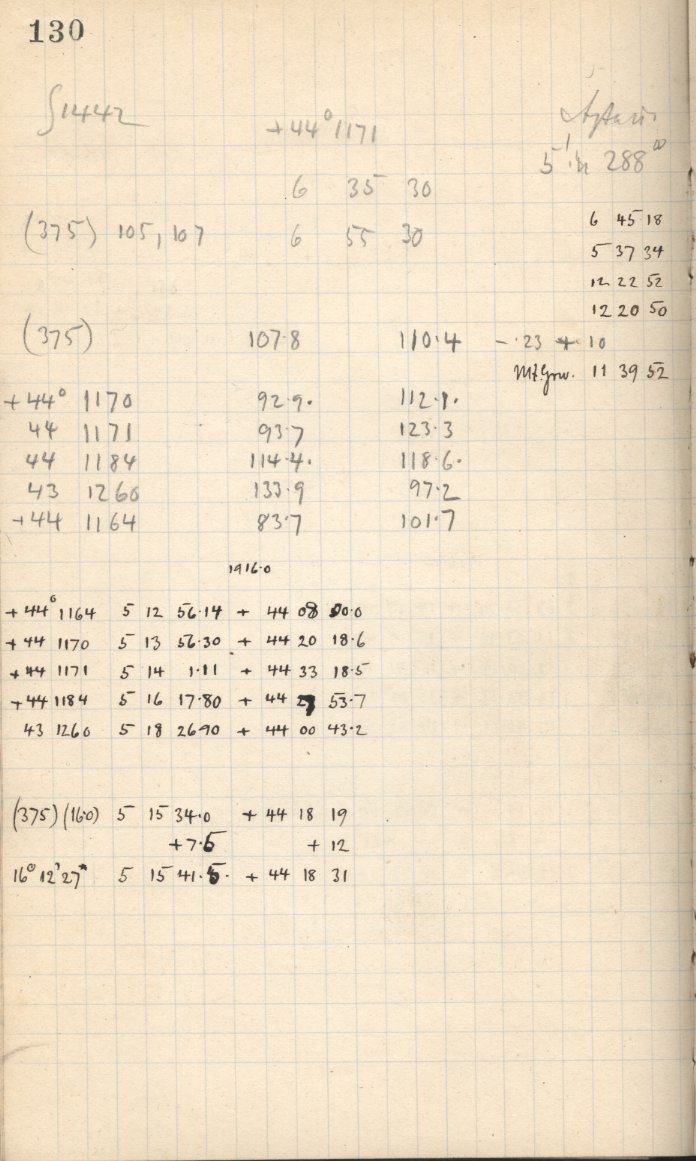 130
∫1442
+44° 1171
5' in 288°
6 35 30
(375) 105, 107 6 55 30
6 45 18
5 37 34
12 22 52
12 20 50
(375) 107.8 110.4 - .23 + 10
Mt.Grw. 11 39 52
+44° 1170 92.9. 112.1.
44 1171 93.7 123.3
44 1184 114.4. 118.6.
43 1260 133.9 97.2
+44 1164 83.7 101.7
1916.0
+44° 1164 5 12 56.14 + 44 08 50.0
+44 1170 5 13 56.30 + 44 20 18.6
+44 1171 5 14 1.11 + 44 33 18.5
+44 1184 5 16 17.80 + 44 53.7
43 1260 5 18 26.90 + 44 00 43.2
(375) (16.0) 5 15 34.0 + 44 18 19
+7.5 + 12
16° 12' 27" 5 15 41.5. + 44 18 31